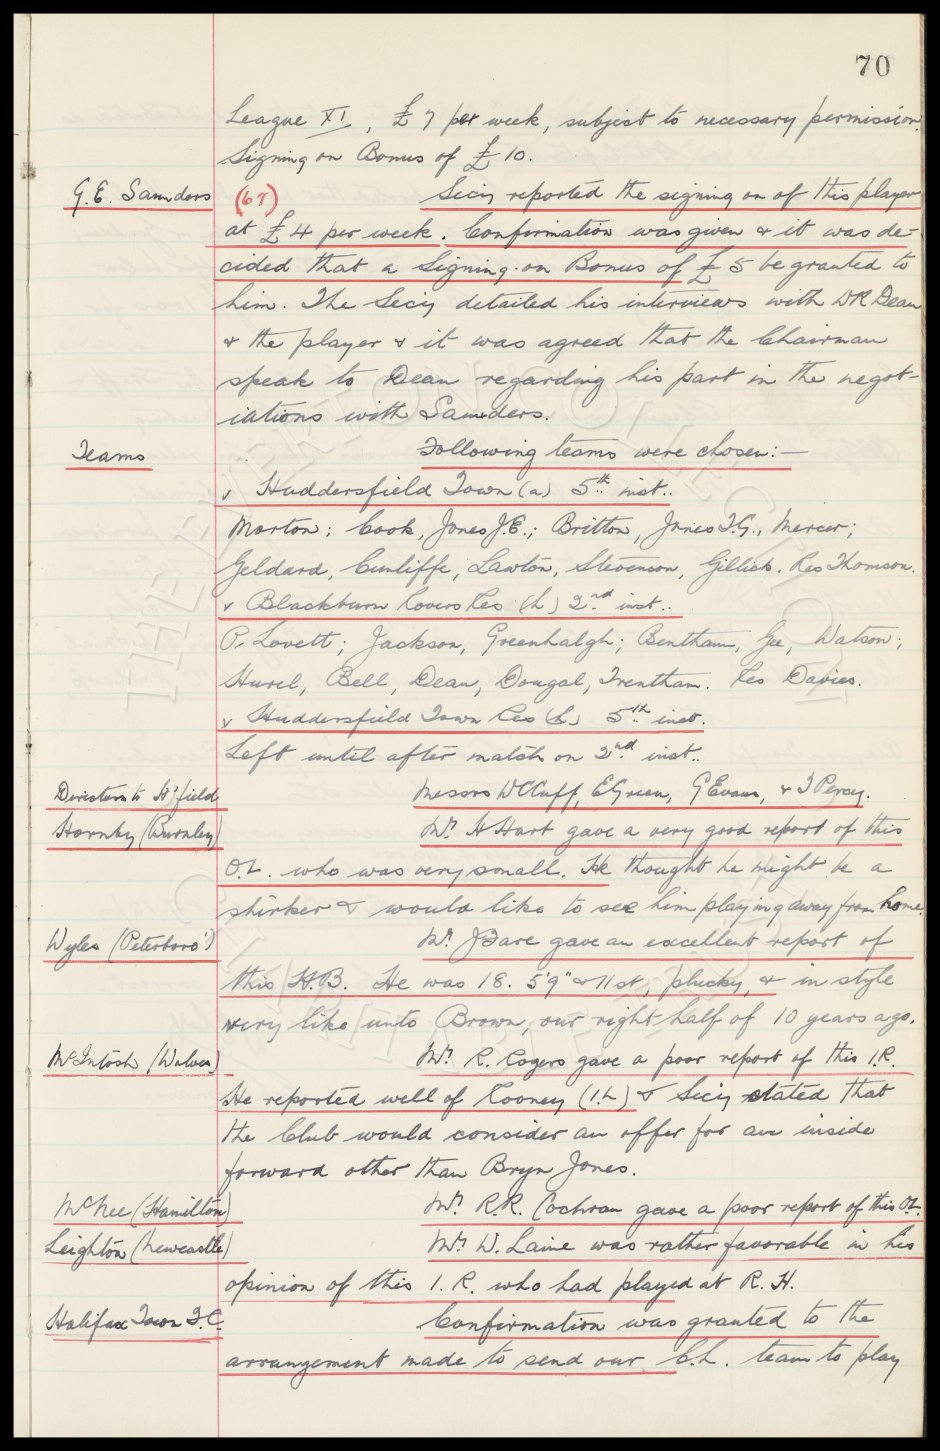 70
League XI, £7 per week, subject to necessary permission.
Signing on Bonus of £10.
G.E. Saunders (67) Secy reported the signing on of this player
at £4 per week. Confirmation was given & it was de-
cided that a Signing-on Bonus of £5 be granted to
him. The Secy detailed his interviews with WR Dean
& the player & it was agreed that the Chairman
speak to Dean regarding his part in the negot-
iations with Saunders.
Teams Following teams were chosen:—
v Huddersfield Town (a) 5th inst..
Morton; Cook, Jones J.E.; Britton, Jones T.G., Mercer;
Geldard, Cunliffe, Lawton, Stevenson, Gillick. Res Thomson.
v Blackburn Rovers Res (h) 2nd inst..
P. Lovett; Jackson, Greenhalgh; Bentham, Gee, Watson;
Hurel, Bell, Dean, Dougal, Trentham. Res Davies.
v Huddersfield Town Res (h) 5th inst.
Left until after match on 2nd inst..
Directors to H'field Messrs WCCuff, EGreen, GEvans, & TPercy.
Hornby (Burnley) Mr. H Hart gave a very good report of this
O.L. who was very small. He thought he might be a
shirker & would like to see him playing away from home.
Wyles (Peterboro') Mr. JFare gave an excellent report of
this H.B. He was 18. 5'9" & 11st, plucky, & in style
very like unto Brown, our right half of 10 years ago.
McIntosh (Wolves) Mr. R. Rogers gave a poor report of this I.R.
He reported well of Rooney (I.L) & Secy stated that
the Club would consider an offer for an inside
forward other than Bryn Jones.
McNee (Hamilton) Mr. R.R. Cochran gave a poor report of this O.L.
Leighton (Newcastle) Mr. W. Laine was rather favorable in his
opinion of this I.R. who had played at R.H.
Halifax Town F.C. Confirmation was granted to the
arrangement made to send our C.L. team to play